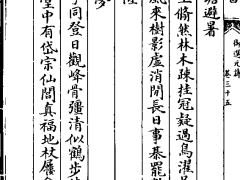 御選元詩
卷三十五
塘避暑
翛然林木疎挂冠疑過鳥濯
風來樹影虛消閒長日事棊罷
子同登日觀峰骨彊清似鶴步
堂中有岱宗仙閣真福地杖屨